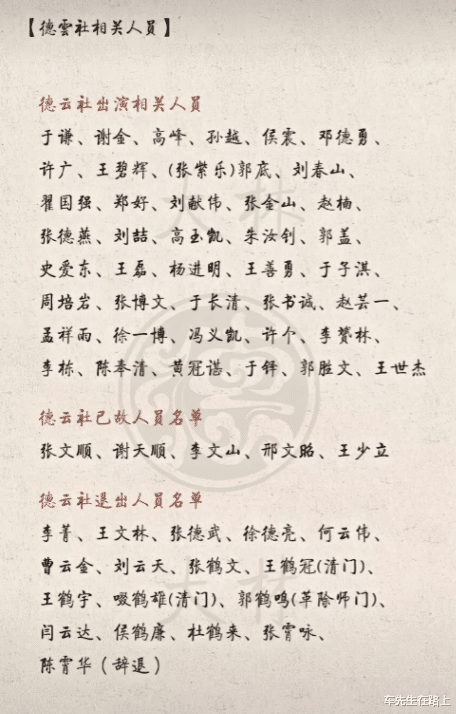 【德雲社相关人員】
德云社出演相关人員
于谦、谢金、高峰、孙越、侯震、邓德勇、
许广、王碧辉、(张紫乐)郭底、刘春山、
翟国强、郑好、刘献伟、张金山、赵楠、
张德燕、刘喆、高玉凯、朱汝钊、郭盖、
史爱东、王磊、杨进明、王善勇、于子淇、
周培岩、张博文、于长清、张书诚、赵芸一、
孟祥雨、徐一博、冯义凯、许个、李赞林、
李栋、陈奉清、黄冠谌、于铎、郭胜文、王世杰
德云社已故人員名单
张文順、谢天順、李文山、邢文昭、王少立
德云社退出人員名单
李菁、王文林、张德武、徐德亮、何云伟、
曹云金、刘云天、张鹤文、王鹤冠(清门)、
王鹤宇、啜鹤雄(清门)、郭鹤鸣(革除师门)、
闫云达、侯鹤廉、杜鹤来、张霄咏、
陈霄华（辞退）
大林
大林
车先生在路上